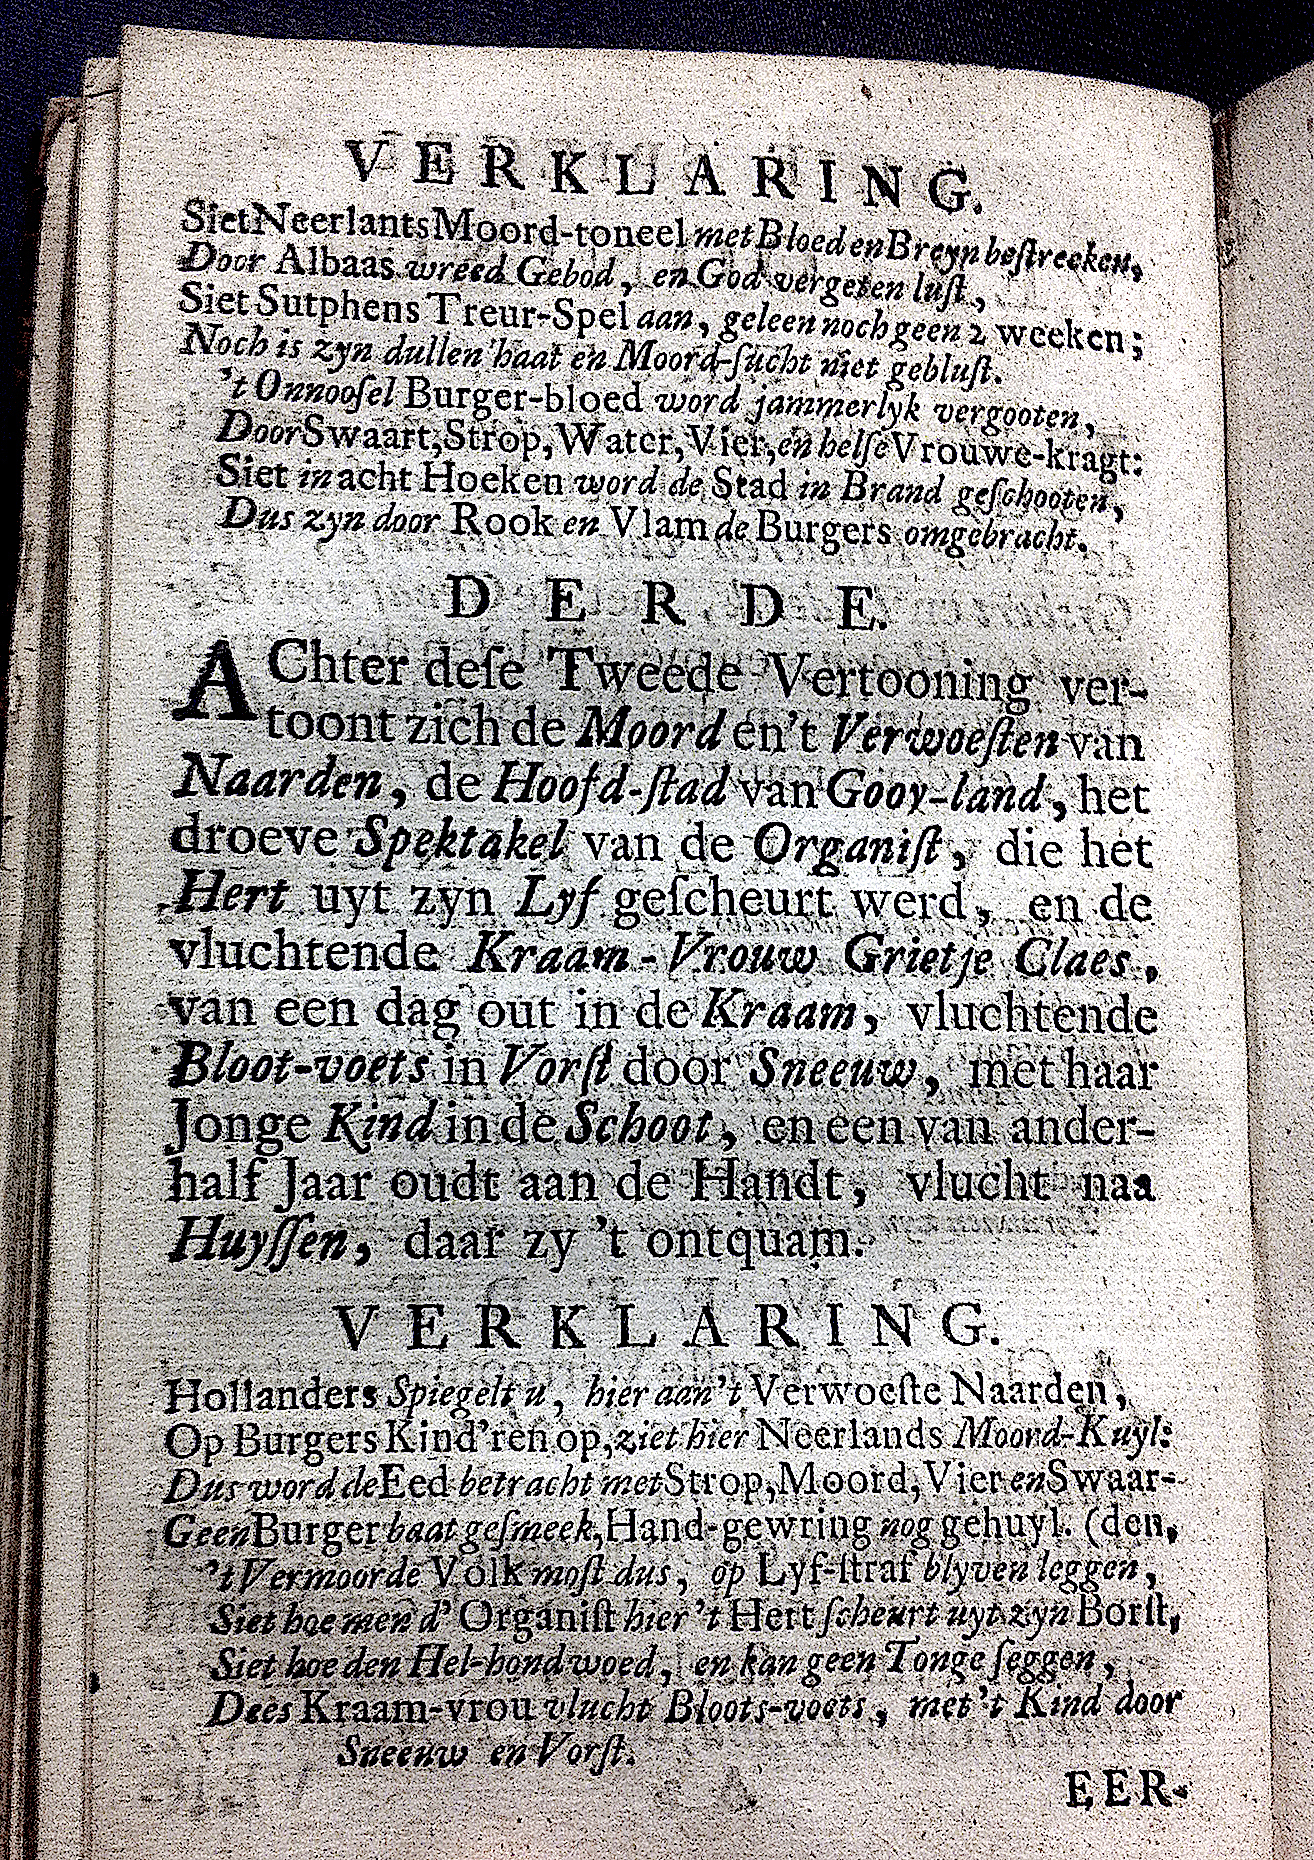 VERKLARING.
Siet Neerlants Moord-toneel met Bloed en Breyn beſtreeken,
Door Albaas wreed Gebod, en God vergeten luſt,
Siet Sutphens Treur-Spel aan, geleen noch geen 2 weeken;
Noch is zyn dullen haat en Moord-ſucht niet gebluſt.
't Onnooſel Burger-bloed word jammerlyk vergooten,
Door Swaart, Strop, Water, Vier, en helſe Vrouwe-kragt:
Siet in acht Hoeken word de Stad in Brand geſchooten,
Dus zyn door Rook en Vlam de Burgers omgebracht.
DERDE.
AChter deſe Tweede Vertooning ver-
toont zich de Moord en 't Verwoeſten van
Naarden, de Hoofd-ſtad van Gooy-land, het
droeve Spektakel van de Organiſt, die het
Hert uyt zyn Lyf geſcheurt werd, en de
vluchtende Kraam-Vrouw Grietje Claes,
van een dag out in de Kraam, vluchtende
Bloot-voets in Vorſt door Sneeuw, met haar
Jonge Kind in de Schoot, en een van ander-
half Jaar oudt aan de Handt, vlucht naa
Huyſſen, daar zy 't ontquam.
VERKLARING.
Hollanders Spiegelt u, hier aan 't Verwoeſte Naarden,
Op Burgers Kind'ren op, ziet hier Neerlands Moord-Kuyl:
Dus word de Eed betracht met Strop, Moord, Vier en Swaar-
Geen Burger baat geſmeek, Hand-gewring nog gehuyl. (den,
't Vermoorde Volk moſt dus, op Lyf-ſtraf blyven leggen,
Siet hoe men d' Organiſt hier 't Hert ſcheurt uyt zyn Borſt,
Siet hoe den Hel-hond woed, en kan geen Tonge ſeggen,
Dees Kraam-vrou vlucht Bloots-voets, met 't Kind door
Sneeuw en Vorſt.
EER-